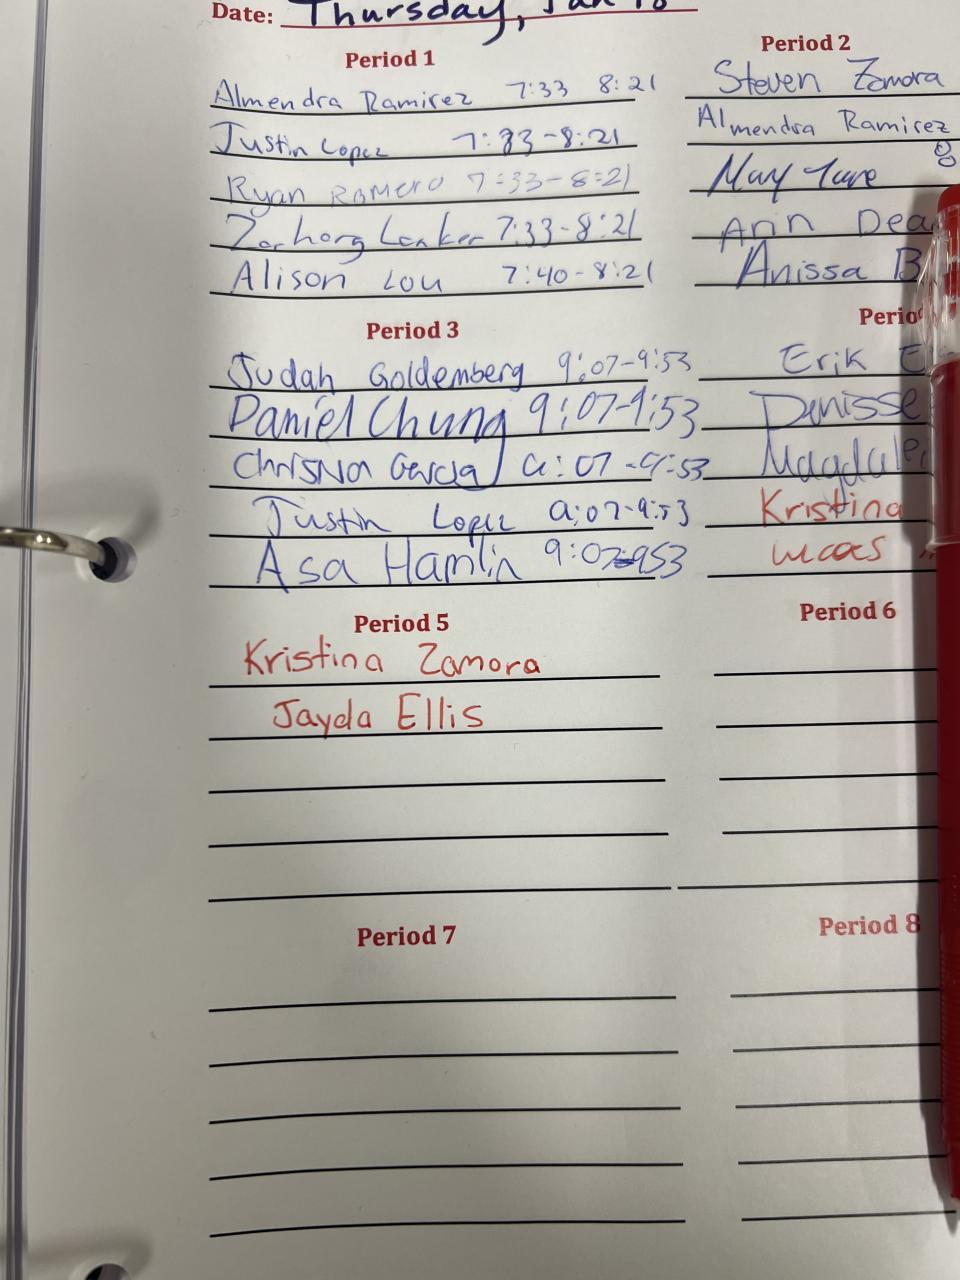 Date: Thursday, Jan 18
Period 1
Almendra Ramirez 7:33 8:21
Justin Lopez 7:33-8:21
Ryan Romero 7:33-8:21
7:33-8:21
Alison Lou 7:40-8:21
Period 2
Steven Zamora
Almendra Ramirez
8
May
Ann Dea
Anissa B
Period 3
Judah Goldemberg 9:07-9:53
Daniel Chung 9:07-9:53
Garcia 9:07-9:53
Justin Lopez 9:07-9:53
Asa Hamlin 9:07-953
Perio
Erik E
Denisse
Magdale
Kristina
Lucas
Period 5
Kristina Zamora
Jayda Ellis
Period 6
Period 7
Period 8